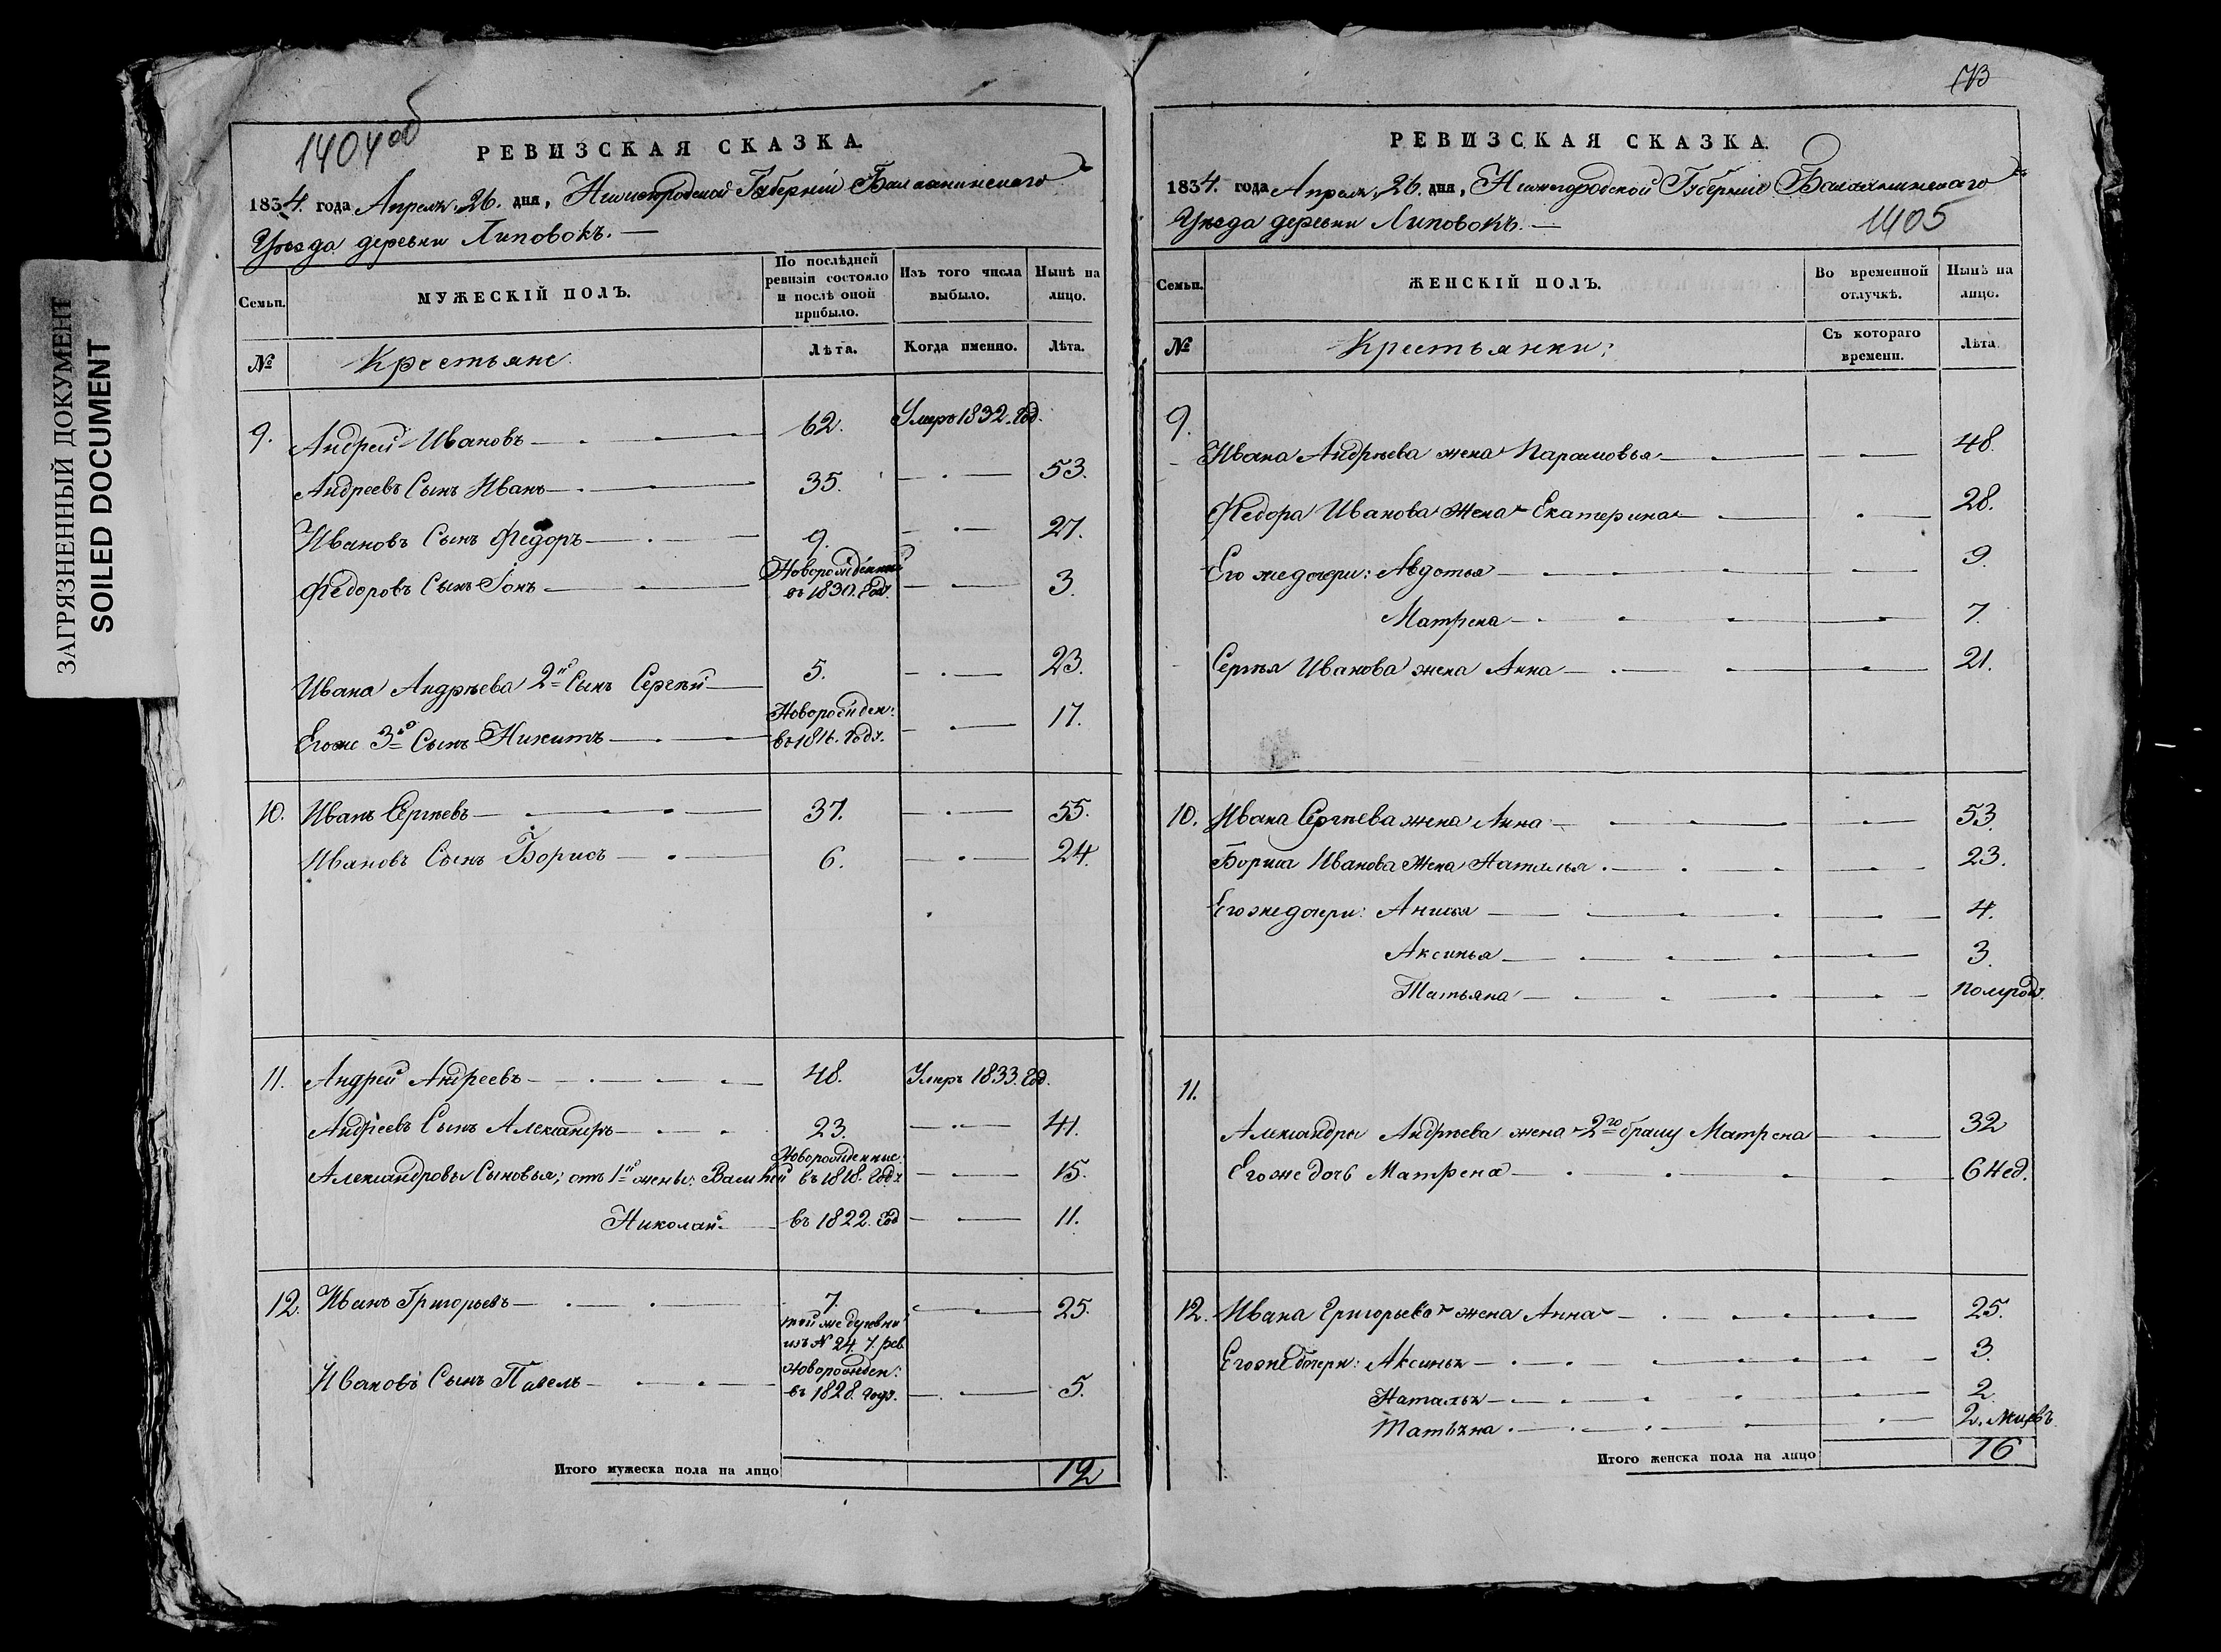 ЗАГРЯЗНЕННЫЙ ДОКУМЕНТ
SOILED DOCUMENT
1404 об
РЕВИЗСКАЯ СКАЗКА.
1834. года Апреля 26. дня, Нижегородской Губерніи Балахнинскаго
Уѣзда деревни Липовокъ. —
Семьи. МУЖЕСКІЙ ПОЛЪ. По послѣдней ревизіи состояло и послѣ оной прибыло. Изъ того числа выбыло. Нынѣ на лицо.
№ Крестьяне. Лѣта. Когда именно. Лѣта.
9. Андрей Ивановъ 62. Умръ 1832. год.
Андреевъ Сынъ Иванъ 35. 53.
Ивановъ Сынъ Федоръ 9. 27.
Федоровъ Сынъ Іонъ Новорожденный въ 1830. год. 3.
Ивана Андрѣева 2й Сынъ Сергѣй 5. 23.
Егоже 3й Сынъ Никитъ Новорожден: въ 1816. годъ. 17.
10. Иванъ Сергѣевъ 37. 55.
Ивановъ Сынъ Борисъ 6. 24.
11. Андрей Андреевъ 48. Умръ 1833. год.
Андреевъ Сынъ Александръ 23. 41.
Александровы Сыновья; отъ 1й жены: Василей Новорожденные: въ 1818. годъ 15.
Николай въ 1822. год 11.
12. Иванъ Григорьевъ 7. той же деревни изъ № 24. 7. рев. 25.
Ивановъ Сынъ Павелъ Новорожден: въ 1828. годъ. 5.
Итого мужеска пола на лицо 12
173
РЕВИЗСКАЯ СКАЗКА.
1834. года Апреля, 26. дня, Нижегородской Губерніи Балахнинскаго
Уѣзда деревни Липовокъ. — 1405
Семьи. ЖЕНСКІЙ ПОЛЪ. Во временной отлучкѣ. Нынѣ на лицо.
№ Крестьянки: Съ котораго времени. Лѣта.
9.
Ивана Андрѣева жена Парамовья 48.
Федора Иванова Жена Екатерина 28.
Его же дочери: Авдотья 9.
Матрена 7.
Сергѣя Иванова жена Анна 21.
10. Ивана Сергѣева жена Анна 53.
Бориса Иванова Жена Наталья 23.
Его же дочери: Анисья 4.
Аксинья 3.
Татьяна полгода.
11.
Александра Андрѣева жена 2го браку Матрена 32
Его же дочь Матрена 6 Нед.
12. Ивана Григорьева жена Анна 25.
Его же дочери: Аксинья 3.
Наталья 2
Татьяна 2. мѣсяцъ
Итого женска пола на лицо 16